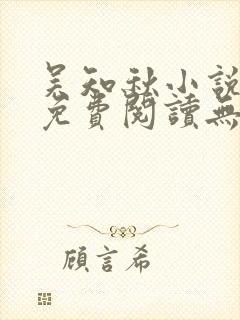 吴知秋小說
免費閱讀無
顧言希